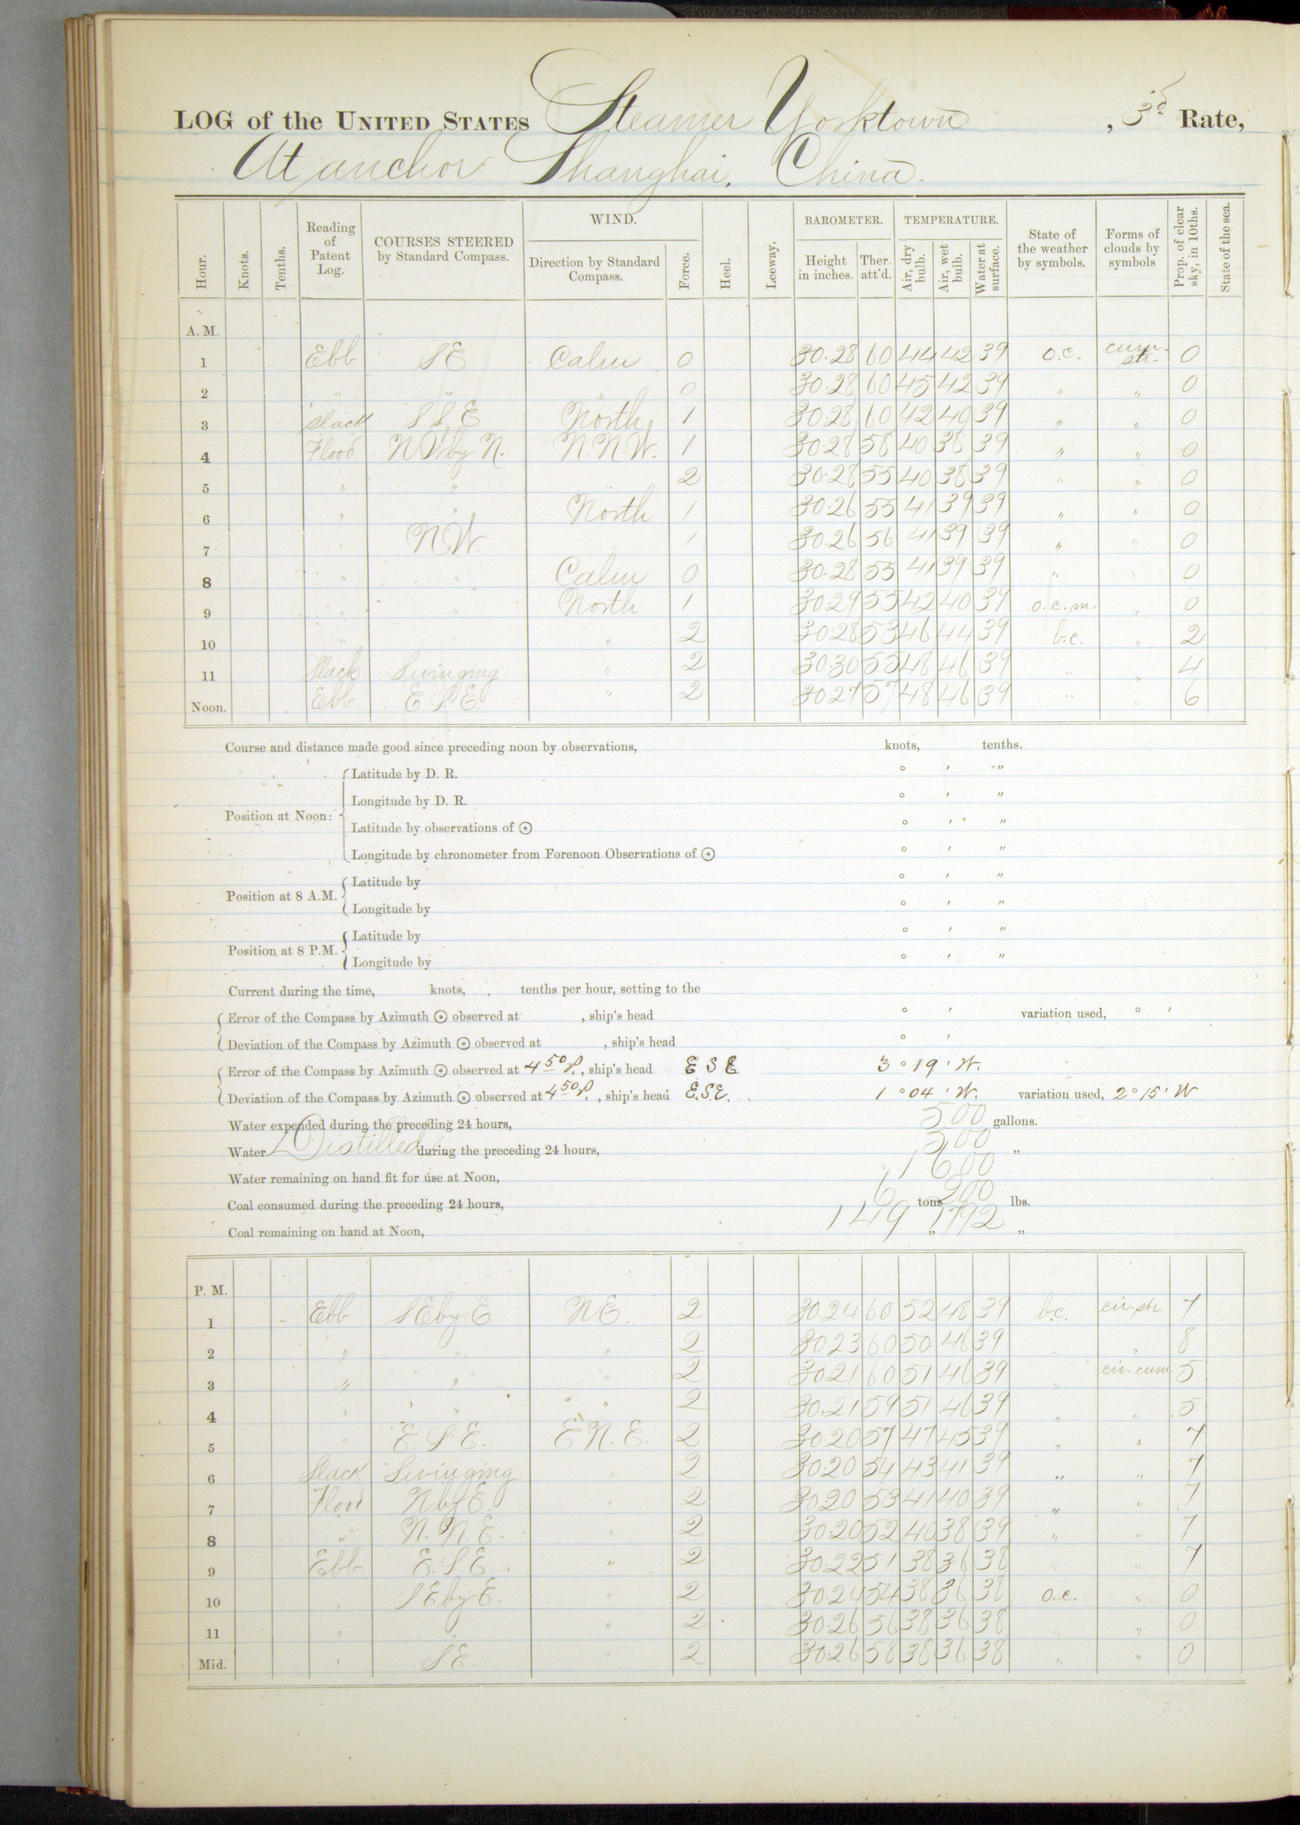 LOG of the UNITED STATES Steamer Yorktown, 3d Rate,
At anchor Shanghai. China.
Hour. Knots. Tenths. Reading of Patent Log. COURSES STEERED by Standard Compass. WIND. Direction by Standard Compass. Force. Heel. Leeway. BAROMETER. Height in inches. Ther. att'd. TEMPERATURE. Air, dry bulb. Air, wet bulb. Water at surface. State of the weather by symbols. Forms of clouds by symbols Prop. of clear sky, in 10ths. State of the sea.
A. M.
1 Ebb SE Calm 0 30.28 60 44 42 39 o.c. cum-str. 0
2 " " " 0 30.28 60 45 42 39 " " 0
3 Slack S S E North 1 30.28 60 42 40 39 " " 0
4 Flood NW by N. N.N.W. 1 30.28 58 40 38 39 " " 0
5 " " 2 30.28 55 40 38 39 " " 0
6 " " North 1 30.26 55 41 39 39 " " 0
7 " N.W. 1 30.26 56 41 39 39 " " 0
8 " " Calm 0 30.28 55 41 39 39 " " 0
9 " " North 1 30.29 55 42 40 39 o.c.m. " 0
10 " " " 2 30.28 53 46 44 39 b.c. " 2
11 Slack Swinging " 2 30.30 55 48 46 39 " " 4
Noon. Ebb E.S.E. " 2 30.27 57 48 46 39 " " 6
Course and distance made good since preceding noon by observations, knots, tenths.
Position at Noon: Latitude by D. R. ° ' "
Longitude by D. R. ° ' "
Latitude by observations of ☉ ° ' "
Longitude by chronometer from Forenoon Observations of ☉ ° ' "
Position at 8 A.M. Latitude by ° ' "
Longitude by ° ' "
Position at 8 P.M. Latitude by ° ' "
Longitude by ° ' "
Current during the time, knots, tenths per hour, setting to the
Error of the Compass by Azimuth ☉ observed at , ship's head ° ' variation used, ° '
Deviation of the Compass by Azimuth ☉ observed at , ship's head ° '
Error of the Compass by Azimuth ☉ observed at 4 50 P., ship's head E S E 3 ° 19 ' W.
Deviation of the Compass by Azimuth ☉ observed at 4 50 P., ship's head E.S.E. 1 ° 04 ' W. variation used, 2 ° 15 ' W
Water expended during the preceding 24 hours, 500 gallons.
Water Distilled during the preceding 24 hours, 500 "
Water remaining on hand fit for use at Noon, 1600
Coal consumed during the preceding 24 hours, 6 tons 200 lbs.
Coal remaining on hand at Noon, 149 " 1792 "
P. M.
1 Ebb SE by E NE. 2 30.24 60 52 48 39 b.c. cir-str. 7
2 " " " 2 30.23 60 50 46 39 " " 8
3 " " " 2 30.21 60 51 46 39 " cir-cum 5
4 " " " 2 30.21 59 51 46 39 " " 5
5 " E.S.E. E N.E. 2 30.20 57 47 45 39 " " 7
6 Slack Swinging " 2 30.20 54 43 41 39 " " 7
7 Flood N by E. " 2 30.20 53 41 40 39 " " 7
8 " N.N.E. " 2 30.20 52 40 38 39 " " 7
9 Ebb E.S.E. " 2 30.22 51 38 36 38 " " 7
10 " SE by E. " 2 30.24 54 38 36 38 o.c. " 0
11 " " " 2 30.26 56 38 36 38 " " 0
Mid. " SE. " 2 30.26 58 38 36 38 " " 0